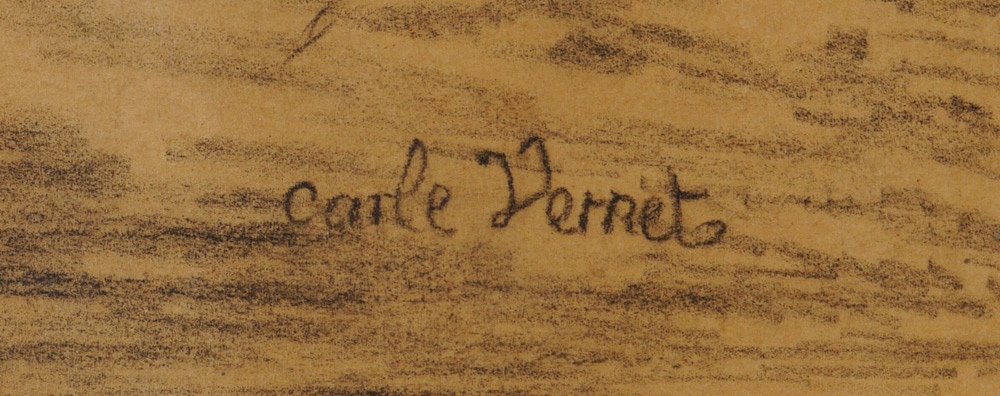 carle Vernet